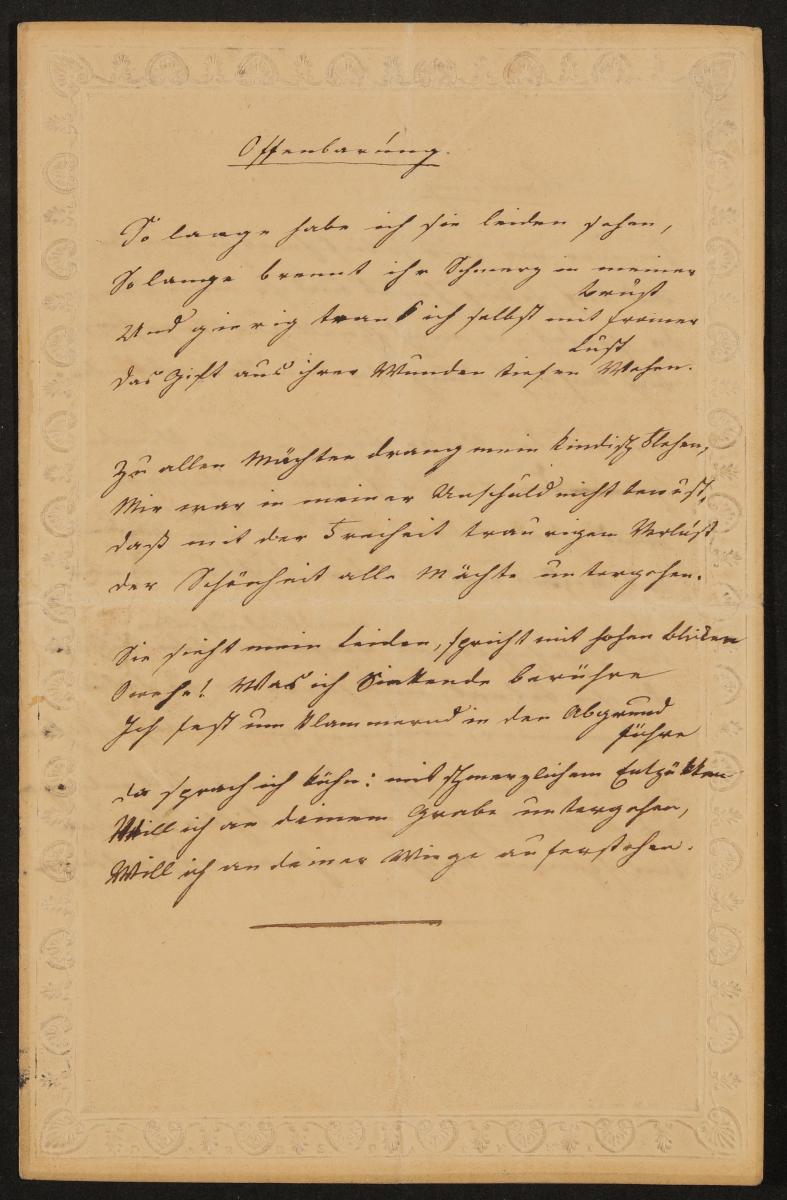 Offenbarung.
So lange habe ich sie leiden sehen,
So lange brennt ihr Schmerz in meiner
Brust
Und gierig trank ich selbst mit fromer
Lust
Das Gift aus ihrer Wunden tiefen Wehen.
Zu allen Mächten drang mein kindisch Flehen,
Mir war in meiner Unschuld nicht bewust,
Daß mit der Freiheit traurigem Verlust
Der Schönheit alle Mächte untergehen.
Sie sieht mein Leiden, spricht mit hohen Blicken
Was ich Sinkende berühre
Ich fest umklammernd in den Abgrund
führe
Da sprach ich kühn: mit schmerzlichem Entzükken
Will ich an deinem Grabe untergehen,
Will ich an deiner Wiege auferstehen.